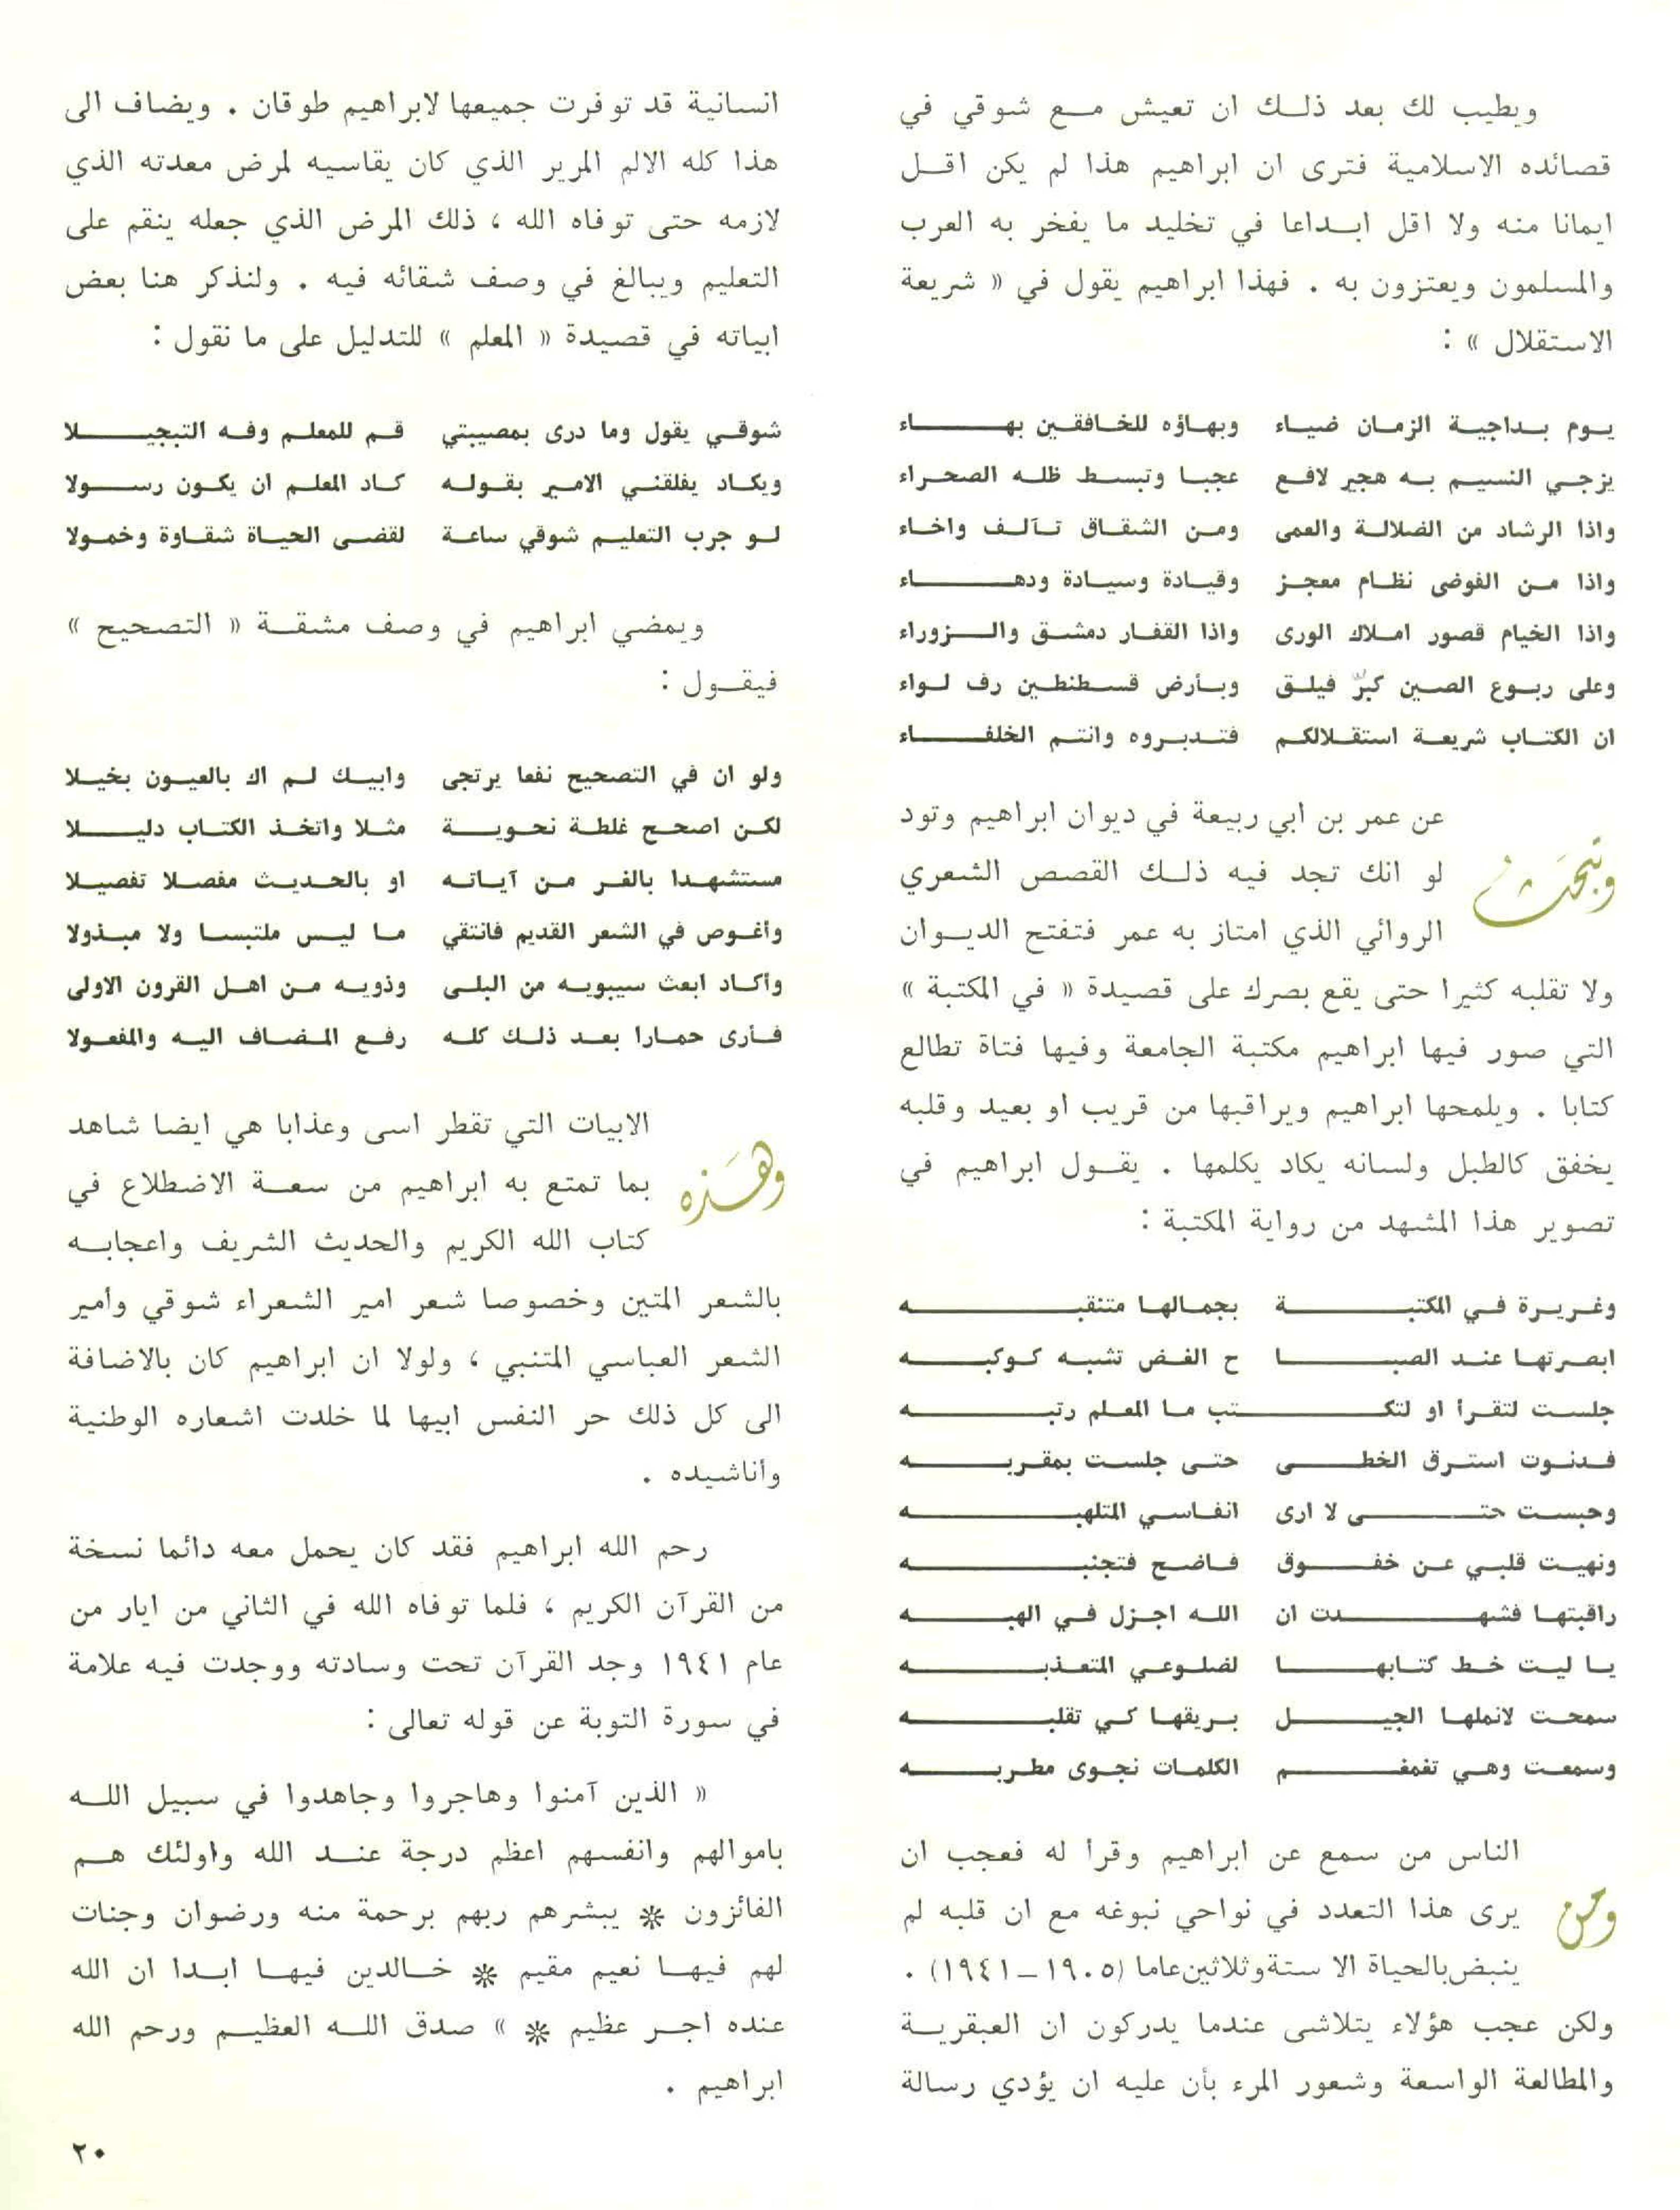 ويطيب لك بعد ذلك ان تعيش مع شوقي في
قصائده الاسلامية فترى ان ابراهيم هذا لم يكن اقل
ايمانا منه ولا اقل ابداعا في تخليد ما يفخر به العرب
والمسلمون ويعتزون به . فهذا ابراهيم يقول في « شريعة
الاستقلال » :
يوم بداجية الزمان ضياء وبهاؤه للخافقين بهاء
يزجي النسيم به هجير لافح عجبا وتبسط ظله الصحراء
واذا الرشاد من الضلالة والعمى ومن الشقاق تآلف واخاء
واذا من الفوضى نظام معجز وقيادة وسيادة ودهاء
واذا الخيام قصور املاك الورى واذا القفار دمشق والزوراء
وعلى ربوع الصين كبّر فيلق وبأرض قسطنطين رف لواء
ان الكتاب شريعة استقلالكم فتدبروه وانتم الخلفاء
وتبحث عن عمر بن ابي ربيعة في ديوان ابراهيم وتود
لو انك تجد فيه ذلك القصص الشعري
الروائي الذي امتاز به عمر فتفتح الديوان
ولا تقلبه كثيرا حتى يقع بصرك على قصيدة « في المكتبة »
التي صور فيها ابراهيم مكتبة الجامعة وفيها فتاة تطالع
كتابا . ويلمحها ابراهيم ويراقبها من قريب او بعيد وقلبه
يخفق كالطبل ولسانه يكاد يكلمها . يقول ابراهيم في
تصوير هذا المشهد من رواية المكتبة :
وغريرة في المكتبة بجمالها متنقبه
ابصرتها عند الصبا ح الغض تشبه كوكبه
جلست لتقرا او لتكـ ـتب ما المعلم رتبه
فدنوت استرق الخطى حتى جلست بمقربه
وحبست حتى لا ارى انفاسي المتلهبه
ونهيت قلبي عن خفوق فاضح فتجنبه
راقبتها فشهدت ان الله اجزل في الهبه
يا ليت خط كتابها لضلوعي المتعذبه
سمحت لانملها الجيل بريقها كي تقلبه
وسمعت وهي تغمغم الكلمات نجوى مطربه
ومن الناس من سمع عن ابراهيم وقرا له فعجب ان
يرى هذا التعدد في نواحي نبوغه مع ان قلبه لم
ينبض بالحياة الا ستة وثلاثين عاما (١٩٠٥ – ١٩٤١) .
ولكن عجب هؤلاء يتلاشى عندما يدركون ان العبقرية
والمطالعة الواسعة وشعور المرء بأن عليه ان يؤدي رسالة
انسانية قد توفرت جميعها لابراهيم طوقان . ويضاف الى
هذا كله الالم المرير الذي كان يقاسيه لمرض معدته الذي
لازمه حتى توفاه الله ، ذلك المرض الذي جعله ينقم على
التعليم ويبالغ في وصف شقائه فيه . ولنذكر هنا بعض
ابياته في قصيدة « المعلم » للتدليل على ما نقول :
شوقي يقول وما درى بمصيبتي قم للمعلم وفه التبجيلا
ويكاد يفلقني الامير بقوله كاد المعلم ان يكون رسولا
لو جرب التعليم شوقي ساعة لقضى الحياة شقاوة وخمولا
ويمضي ابراهيم في وصف مشقة « التصحيح »
فيقول :
ولو ان في التصحيح نفعا يرتجى وابيك لم اك بالعيون بخيلا
لكن اصحح غلطة نحوية مثلا واتخذ الكتاب دليلا
مستشهدا بالغر من آياته او بالحديث مفصلا تفصيلا
وأغوص في الشعر القديم فانتقي ما ليس ملتبسا ولا مبذولا
وأكاد ابعث سيبويه من البلى وذويه من اهل القرون الاولى
فأرى حمارا بعد ذلك كله رفع المضاف اليه والمفعولا
وهذه الابيات التي تقطر اسى وعذابا هي ايضا شاهد
بما تمتع به ابراهيم من سعة الاضطلاع في
كتاب الله الكريم والحديث الشريف واعجابه
بالشعر المتين وخصوصا شعر امير الشعراء شوقي وأمير
الشعر العباسي المتنبي ، ولولا ان ابراهيم كان بالاضافة
الى كل ذلك حر النفس ابيها لما خلدت اشعاره الوطنية
وأناشيده .
رحم الله ابراهيم فقد كان يحمل معه دائما نسخة
من القرآن الكريم ، فلما توفاه الله في الثاني من ايار من
عام ١٩٤١ وجد القرآن تحت وسادته ووجدت فيه علامة
في سورة التوبة عن قوله تعالى :
« الذين آمنوا وهاجروا وجاهدوا في سبيل الله
باموالهم وانفسهم اعظم درجة عند الله واولئك هم
الفائزون * يبشرهم ربهم برحمة منه ورضوان وجنات
لهم فيها نعيم مقيم * خالدين فيها ابدا ان الله
عنده اجر عظيم * » صدق الله العظيم ورحم الله
ابراهيم .
٢٠